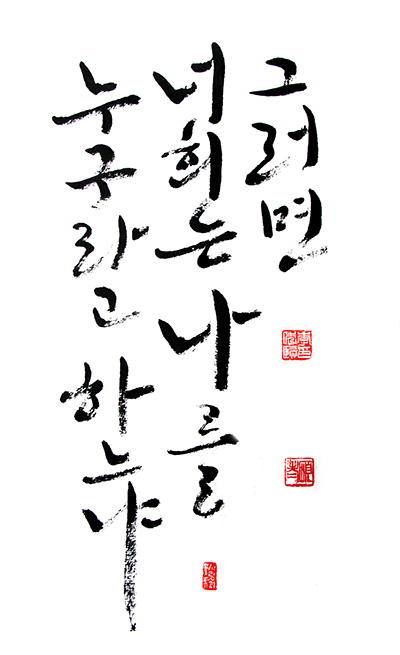 그러면
너희는 나를
누구라고 하느냐